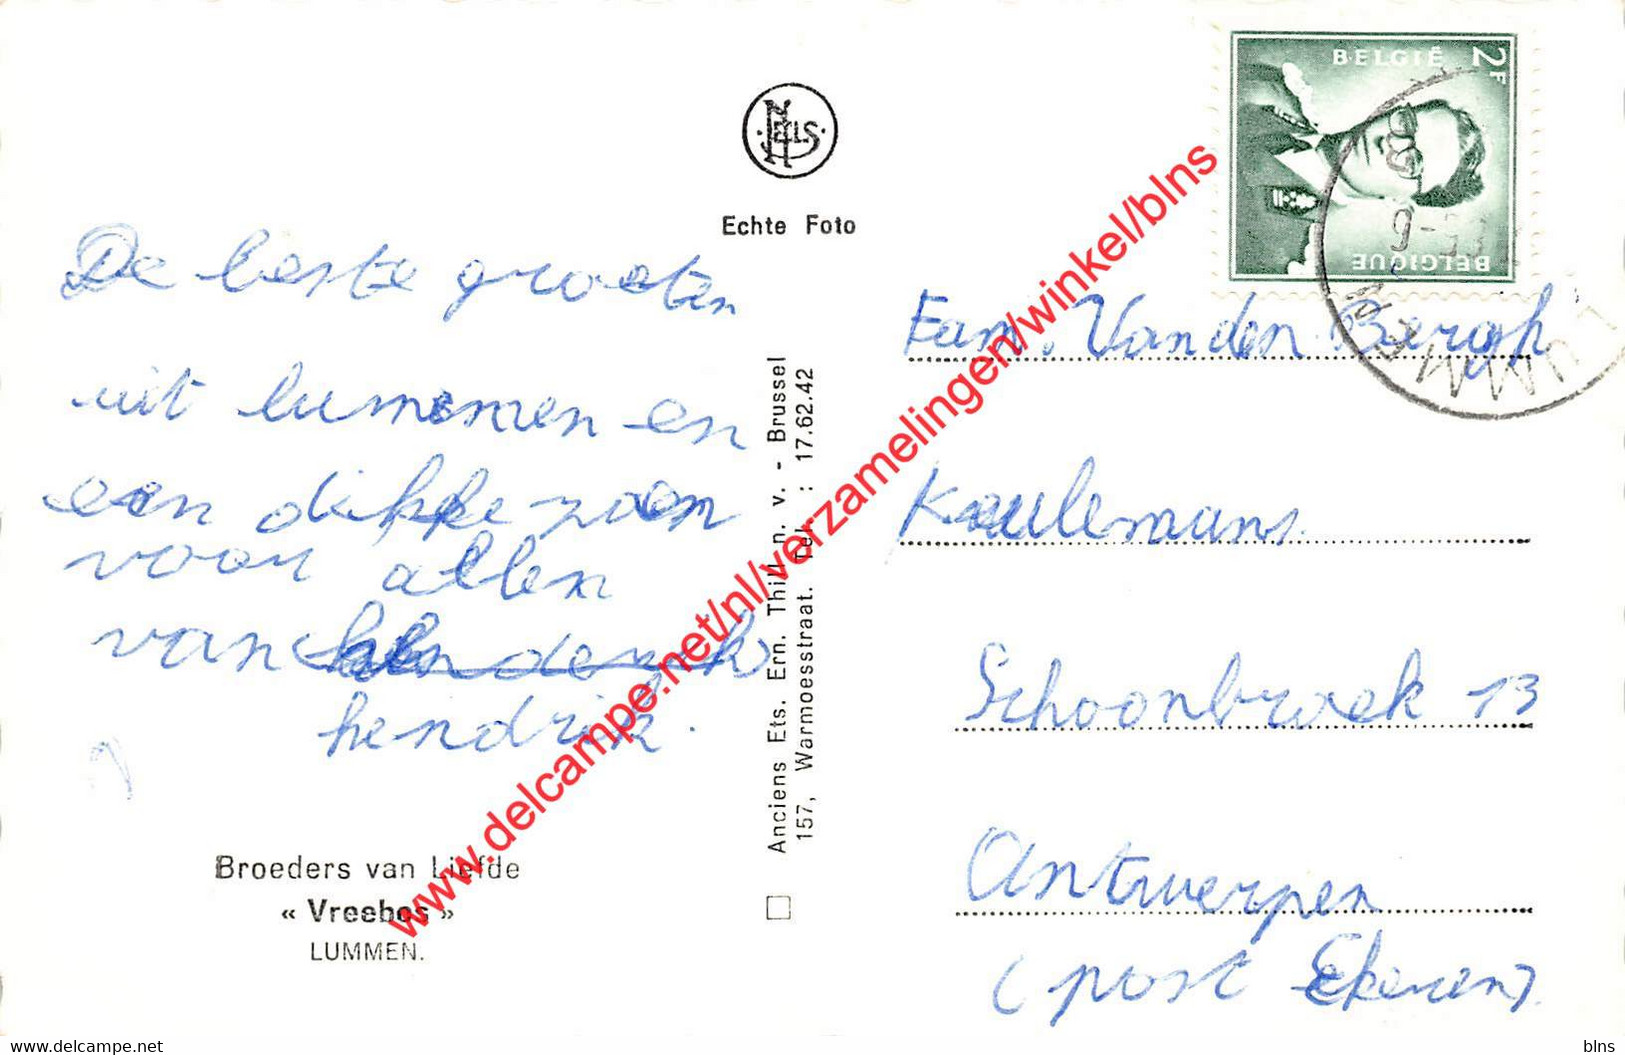 NELS
Echte Foto
De beste groeten
uit lummen en
een dikke zoen
voor allen
van
hendrik.
Broeders van Liefde
« Vreebos »
LUMMEN.
Anciens Ets. Ern. Thill n. v. - Brussel
157, Warmoesstraat. Tel : 17.62.42
BELGIË 2F
BELGIQUE
LUMMEN
Fam. Vanden Bergh
Keulemans.
Schoonbroek 13
Antwerpen
(post Ekeren)
www.delcampe.net/nl/verzamelingen/winkel/blns
www.delcampe.net
blns